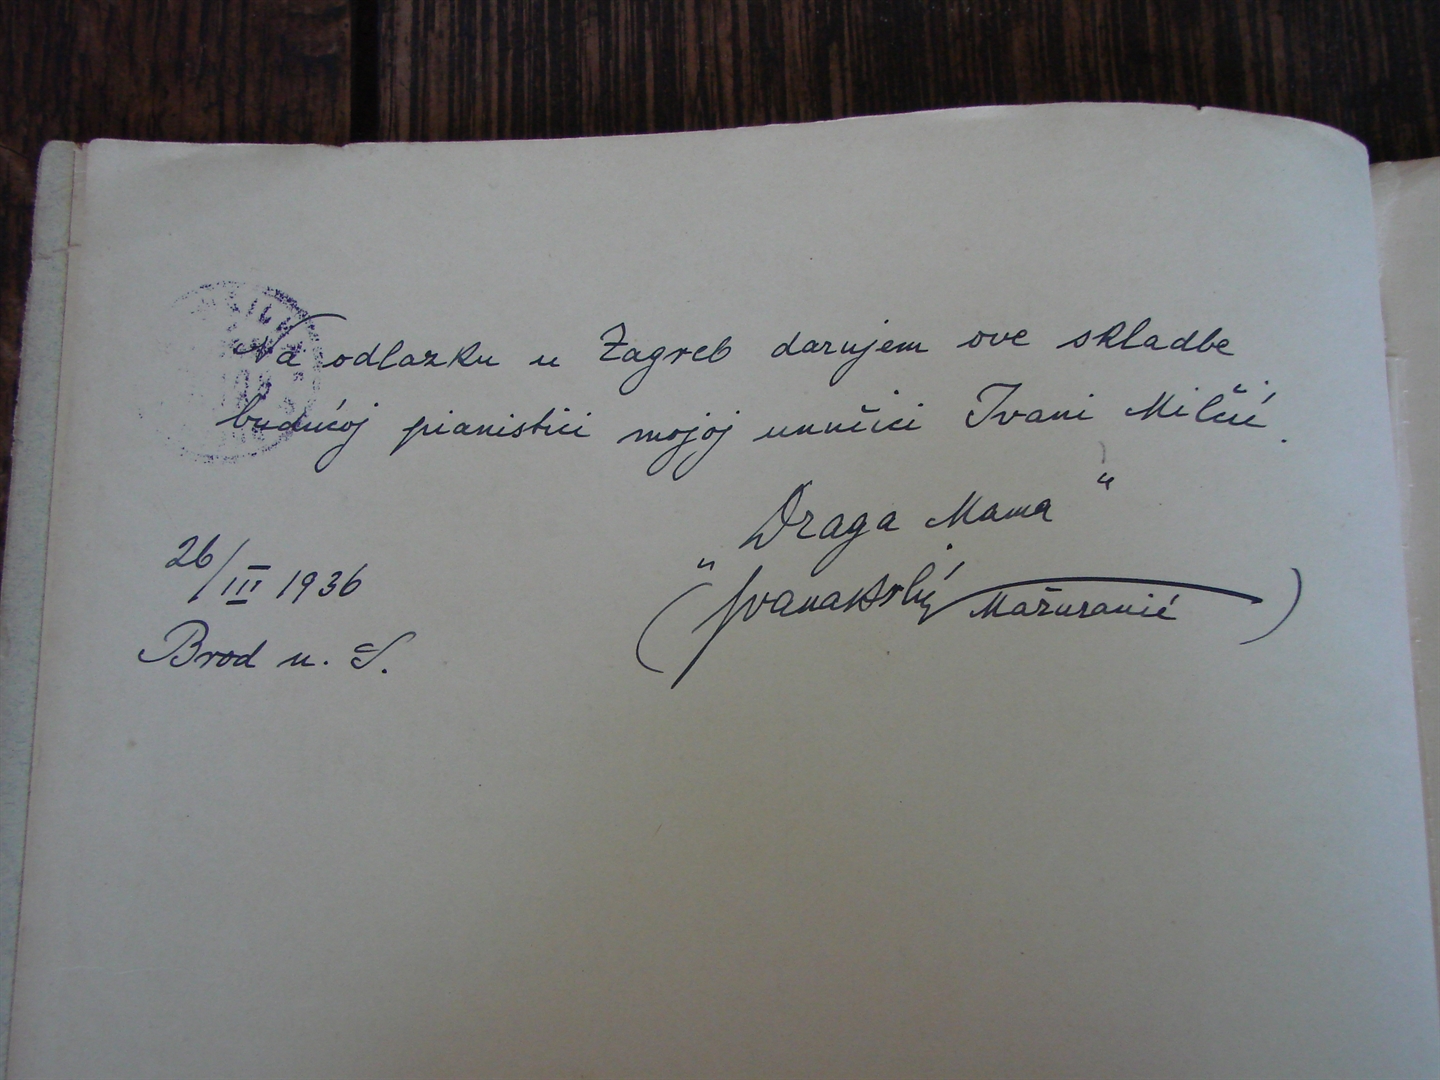 Na odlazku u Zagreb darujem ove skladbe
budućoj pianistici mojoj unučici Ivani Milčić.
"Draga Mama"
(Ivana Brlić Mažuranić)
26/III 1936
Brod n. S.